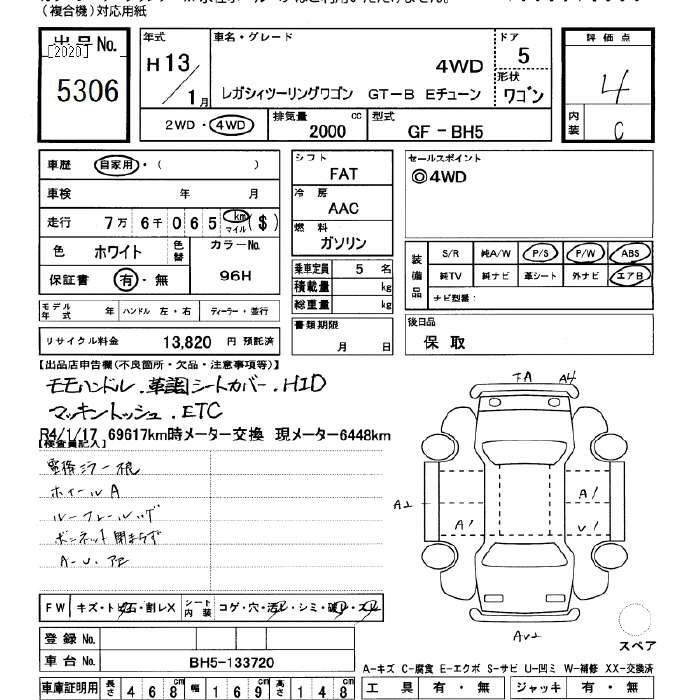 (複合機)対応用紙
出品No.
[2020]
5306
年式
H13/1月
車名・グレード
4WD
レガシィツーリングワゴン GT-B Eチューン
ドア
5
形状
ワゴン
2WD・4WD
排気量 cc
2000
型式
GF-BH5
評価点
4
内装
C
車歴 自家用・( )
車検 年 月
走行 7万6千065 km マイル ($)
色 ホワイト 色替
カラーNo.
96H
保証書 有・無
モデル年式 年 ハンドル 左・右 ディーラー・並行
リサイクル料金 13,820 円 預託済
シフト
FAT
冷房
AAC
燃料
ガソリン
乗車定員 5 名
積載量 kg
総重量 kg
書類期限
月 日
セールスポイント
◎4WD
装備品
S/R 純A/W P/S P/W ABS
純TV 純ナビ 革シート 外ナビ エアB
ナビ型番:
後日品
保取
【出品店申告欄(不良箇所・欠品・注意事項等)】
モモハンドル.革調シートカバー.HID
マッキントッシュ.ETC
R4/1/17 69617km時メーター交換 現メーター6448km
【検査員記入】
ホイールA
ボンネット閉まらず
A-U.
FW キズ・トビ石・割レX シート内装 コゲ・穴・汚レ・シミ・破レ・スレ
登録No.
車台No. BH5-133720
車庫証明用 長さ 468cm 幅 169cm 高さ 148cm
A4
A2
A1
A1
U1
AU2
スペア
A-キズ C-腐食 E-エクボ S-サビ U-凹ミ W-補修 XX-交換済
工具 有・無 ジャッキ 有・無